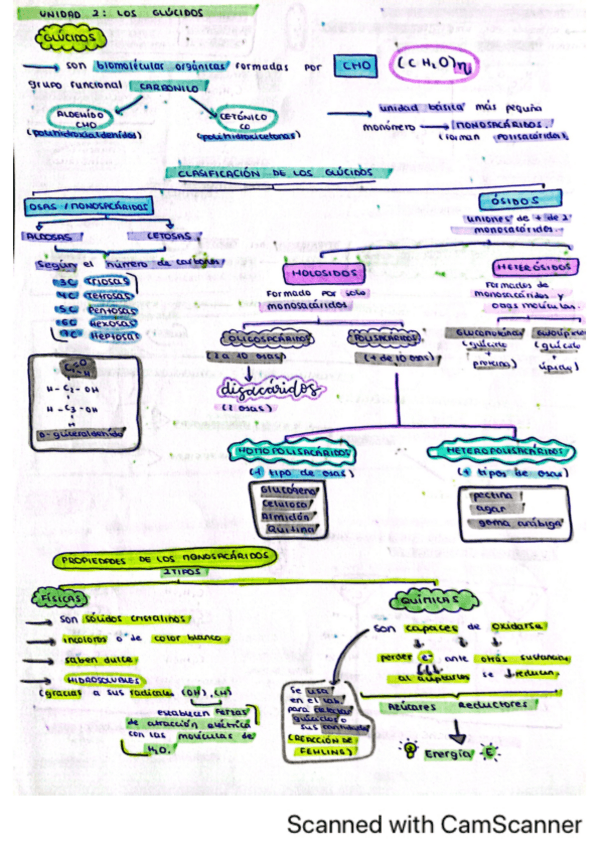 UNIDAD 2: LOS GLÚCIDOS
GLÚCIDOS
→ son biomoléculas orgánicas formadas por CHO (CH₂O)n
grupo funcional CARBONILO
ALDEHÍDO CETÓNICO → unidad básica más pequeña
CHO CO monómero → MONOSACÁRIDOS.
(polihidroxialdehídos) (polihidroxicetonas) (forman polisacáridos)
CLASIFICACIÓN DE LOS GLÚCIDOS
OSAS / MONOSACÁRIDOS
ALDOSAS CETOSAS
según el número de carbonos
3C TRIOSAS
4C Tetrosas
5C Pentosas
6C Hexosas
7C Heptosas
H - C₂ - OH
H - C₃ - OH
H
D-gliceraldehído
ÓSIDOS
uniones de + de 2
monosacáridos.
HOLÓSIDOS
Formado por solo
monosacáridos
HETERÓSIDOS
Formados de
monosacáridos y
otras moléculas.
OLIGOSACÁRIDOS
(2 a 10 osas)
disacáridos
(2 osas)
POLISACÁRIDOS
(+ de 10 osas)
(glúcido
+
proteína)
(glúcido
+
lípidos)
HOMOPOLISACÁRIDOS
(1 tipo de osas)
Glucógeno
Celulosa
Almidón
Quitina
HETEROPOLISACÁRIDOS
(+ tipos de osas)
pectina
agar
goma arábiga
PROPIEDADES DE LOS MONOSACÁRIDOS
2 TIPOS
FÍSICAS
→ son sólidos cristalinos
→ incoloros o de color blanco
→ saben dulce
→ HIDROSOLUBLES
(gracias a sus radicales (OH), (H)
establecen fzas
de atracción eléctrica
con las moléculas de
H₂O.
QUÍMICAS
son capaces de oxidarse
perder e⁻ ante otras sustancias
al aceptarlos se reducen.
Azúcares reductores
Energía
Se usa
en el lab.
para detectar
glúcidos o
(REACCIÓN DE
FEHLING)
Scanned with CamScanner